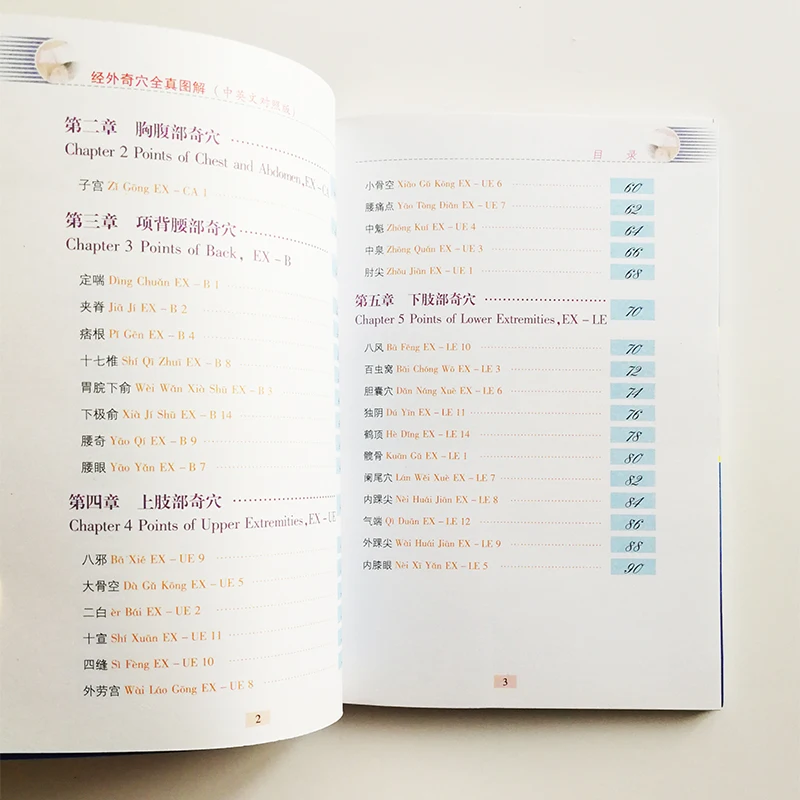 经外奇穴全真图解(中英文对照版)
第二章 胸腹部奇穴
Chapter 2 Points of Chest and Abdomen,EX-CA
子宫 Zǐ Gōng EX-CA 1
第三章 项背腰部奇穴
Chapter 3 Points of Back, EX-B
定喘 Dìng Chuǎn EX-B 1
夹脊 Jiā Jǐ EX-B 2
痞根 Pǐ Gēn EX-B 4
十七椎 Shí Qī Zhuī EX-B 8
胃脘下俞 Wèi Wǎn Xià Shū EX-B 3
下极俞 Xià Jí Shū EX-B 14
腰奇 Yāo Qí EX-B 9
腰眼 Yāo Yǎn EX-B 7
第四章 上肢部奇穴
Chapter 4 Points of Upper Extremities,EX-UE
八邪 Bā Xié EX-UE 9
大骨空 Dà Gǔ Kōng EX-UE 5
二白 èr Bái EX-UE 2
十宣 Shí Xuān EX-UE 11
四缝 Sì Fèng EX-UE 10
外劳宫 Wài Láo Gōng EX-UE 8
2
目 录
小骨空 Xiǎo Gǔ Kōng EX-UE 6 60
腰痛点 Yāo Tòng Diǎn EX-UE 7 62
中魁 Zhōng Kuí EX-UE 4 64
中泉 Zhōng Quán EX-UE 3 66
肘尖 Zhǒu Jiān EX-UE 1 68
第五章 下肢部奇穴 70
Chapter 5 Points of Lower Extremities,EX-LE
八风 Bā Fēng EX-LE 10 70
百虫窝 Bǎi Chóng Wō EX-LE 3 72
胆囊穴 Dǎn Náng Xué EX-LE 6 74
独阴 Dú Yīn EX-LE 11 76
鹤顶 Hè Dǐng EX-LE 14 78
髋骨 Kuān Gǔ EX-LE 1 80
阑尾穴 Lán Wěi Xué EX-LE 7 82
内踝尖 Nèi Huái Jiān EX-LE 8 84
气端 Qì Duān EX-LE 12 86
外踝尖 Wài Huái Jiān EX-LE 9 88
内膝眼 Nèi Xī Yǎn EX-LE 5 90
3